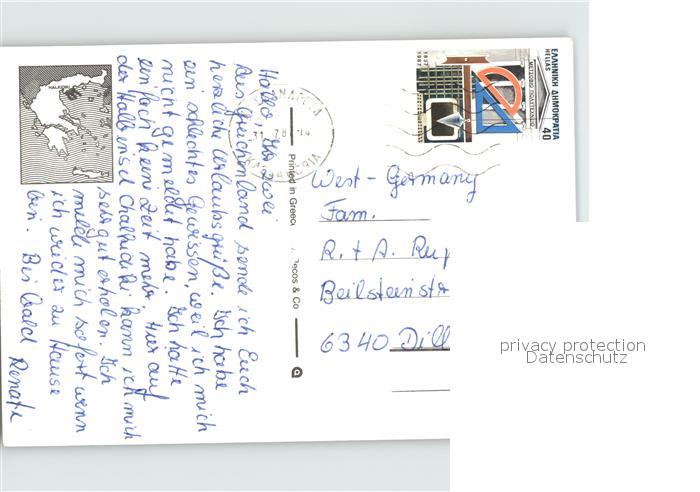 Hallo Ihr zwei.
Aus Griechenland sende ich Euch
herzliche Urlaubsgrüße. Ich habe
ein schlechtes Gewissen, weil ich mich
nicht gemeldet habe. Ich hatte
einfach keine Zeit mehr. Hier auf
der Halbinsel Chalkidiki kann ich mich
sehr gut erholen. Ich
melde mich sofort wenn
ich wieder zu Hause
bin. Bis bald Renate
HALKIDIKI
Printed in Greece
ecos & Co
ΕΛΛΗΝΙΚΗ ΔΗΜΟΚΡΑΤΙΑ
HELLAS
40
1837
1987
West-Germany
Fam.
R. + A. Rup
Beilsteinstr
6340 Dill
privacy protection
Datenschutz